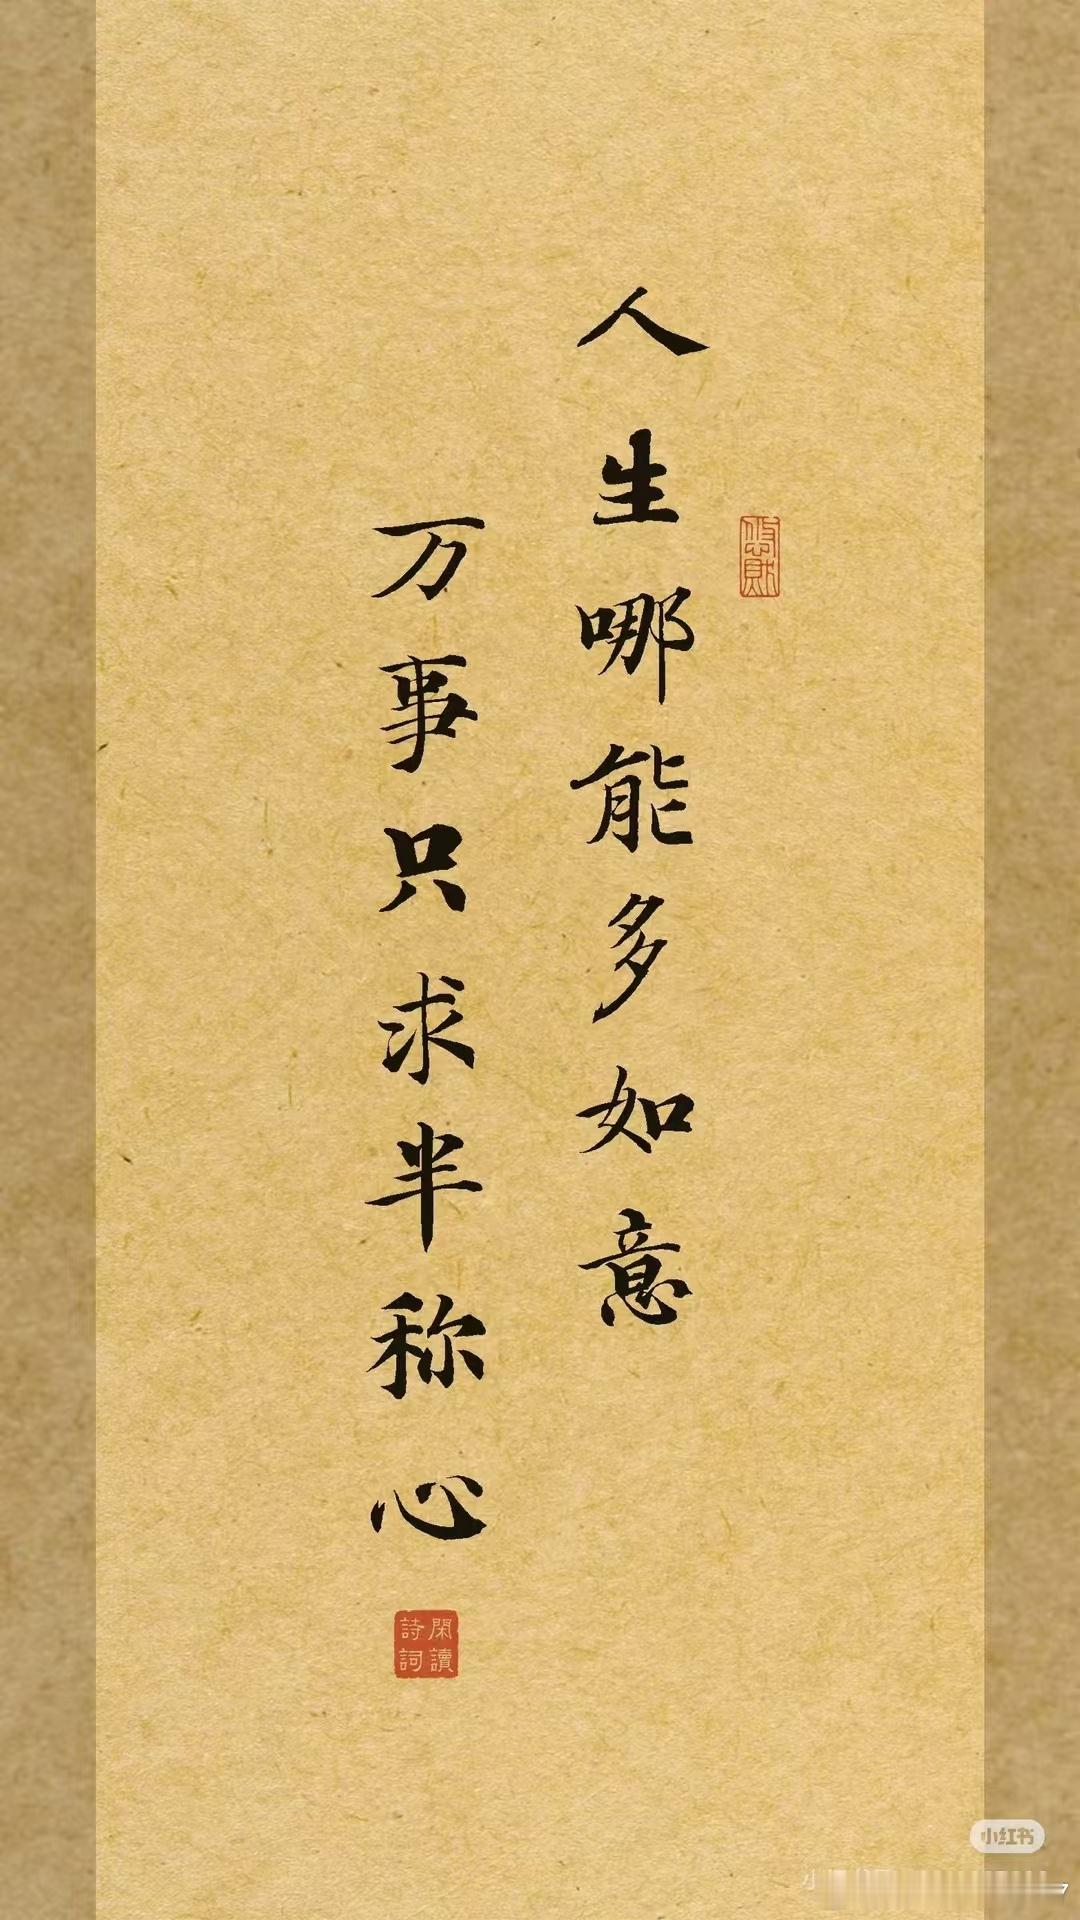 人生哪能多如意
万事只求半称心
閑讀
詩詞
小红书